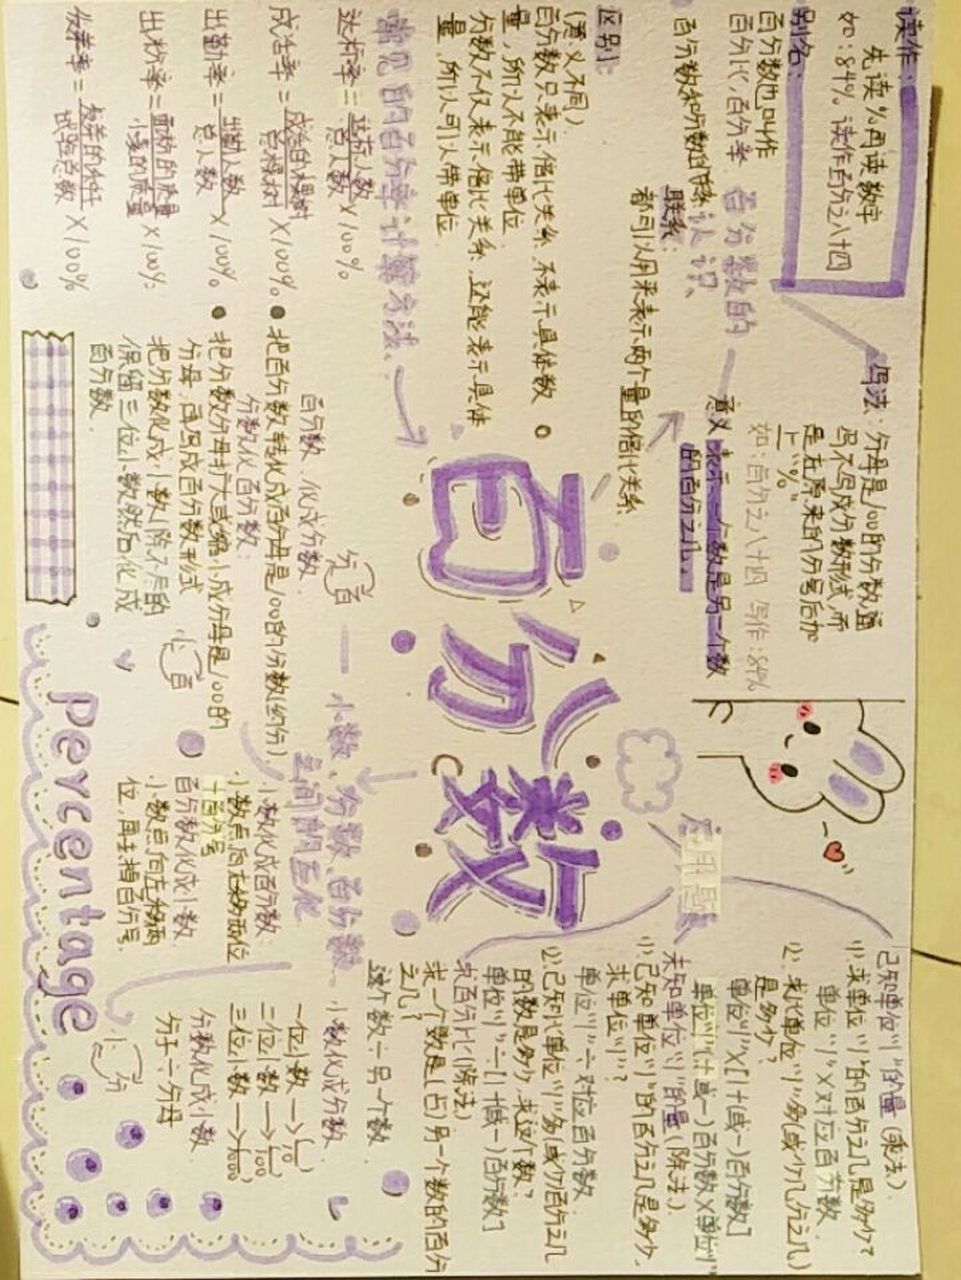 读作:
先读%再读数字
如:84% 读作百分之八十四
别名:
百分数也叫作
百分比,百分率
百分数的
认识
写法:分母是100的分数通
常不写成分数形式,而
是在原来的分子后加
上"%"
如:百分之八十四 写作:84%
意义:表示一个数是另一个数
的百分之几
百分数和分数的联系
联系:
都可以用来表示两个量的倍比关系
区别:
(意义不同)
百分数只表示倍比关系,不表示具体数
量,所以不能带单位
分数不仅表示倍比关系,还能表示具体
量,所以可以带单位
常见的百分率计算方法:
达标率=达标人数/总人数×100%
成活率=成活的棵树/总棵树×100%
出勤率=出勤人数/总人数×100%
出粉率=面粉的质量/小麦的质量×100%
发芽率=发芽的种子/试验总数×100%
百分数
应用题
已知单位"1"的量(乘法)
(1)求单位"1"的百分之几是多少?
单位"1"×对应百分数
(2)求比单位"1"多(或少)几分之几
是多少?
单位"1"×[1+(或-)百分数]
单位"1"+(或-)百分数×单位"1"
未知单位"1"的量(除法)
(1)已知单位"1"的百分之几是多少,
求单位"1"?
单位"1"÷对应百分数
(2)已知比单位"1"多(或少)百分之几
的数是多少,求这个数?
单位"1"÷[1+(或-)百分数]
求百分比(除法)
求一个数是(占)另一个数的百分
之几?
这个数÷另一个数
小数、分数、百分数
之间的互化
分 百
百分数化成分数
把百分数转化成百分母是100的分数(约分)
分数化百分数:
把分数分母扩大或缩小成分母是100的
分母,再写成百分数形式
把分数化成小数(除不尽的
保留三位小数)然后化成
百分数.
小 百
小数化成百分数:
小数点向右移两位
+百分号
百分数化成小数
小数点向左移两
位,再去掉百分号.
小 分
小数化成分数
一位小数→(1/10)
二位小数→(1/100)
三位小数→(1/1000)
分数化成小数
分子÷分母
percentage